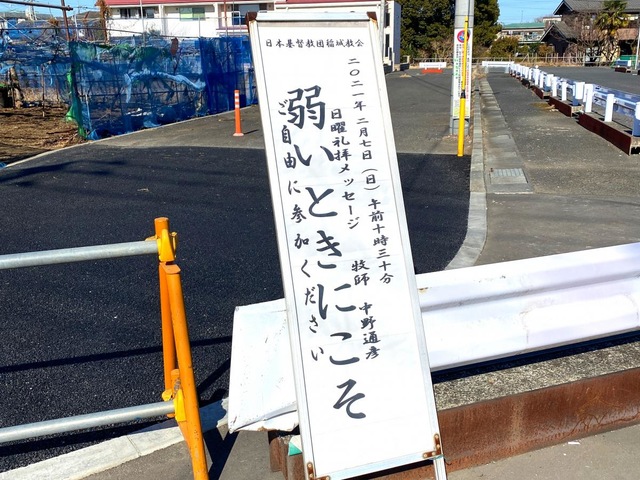 日本基督教団稲城教会
二〇二一年 二月七日（日）午前十時三十分
日曜礼拝メッセージ 牧師 中野通彦
弱いときにこそ
ご自由に参加ください